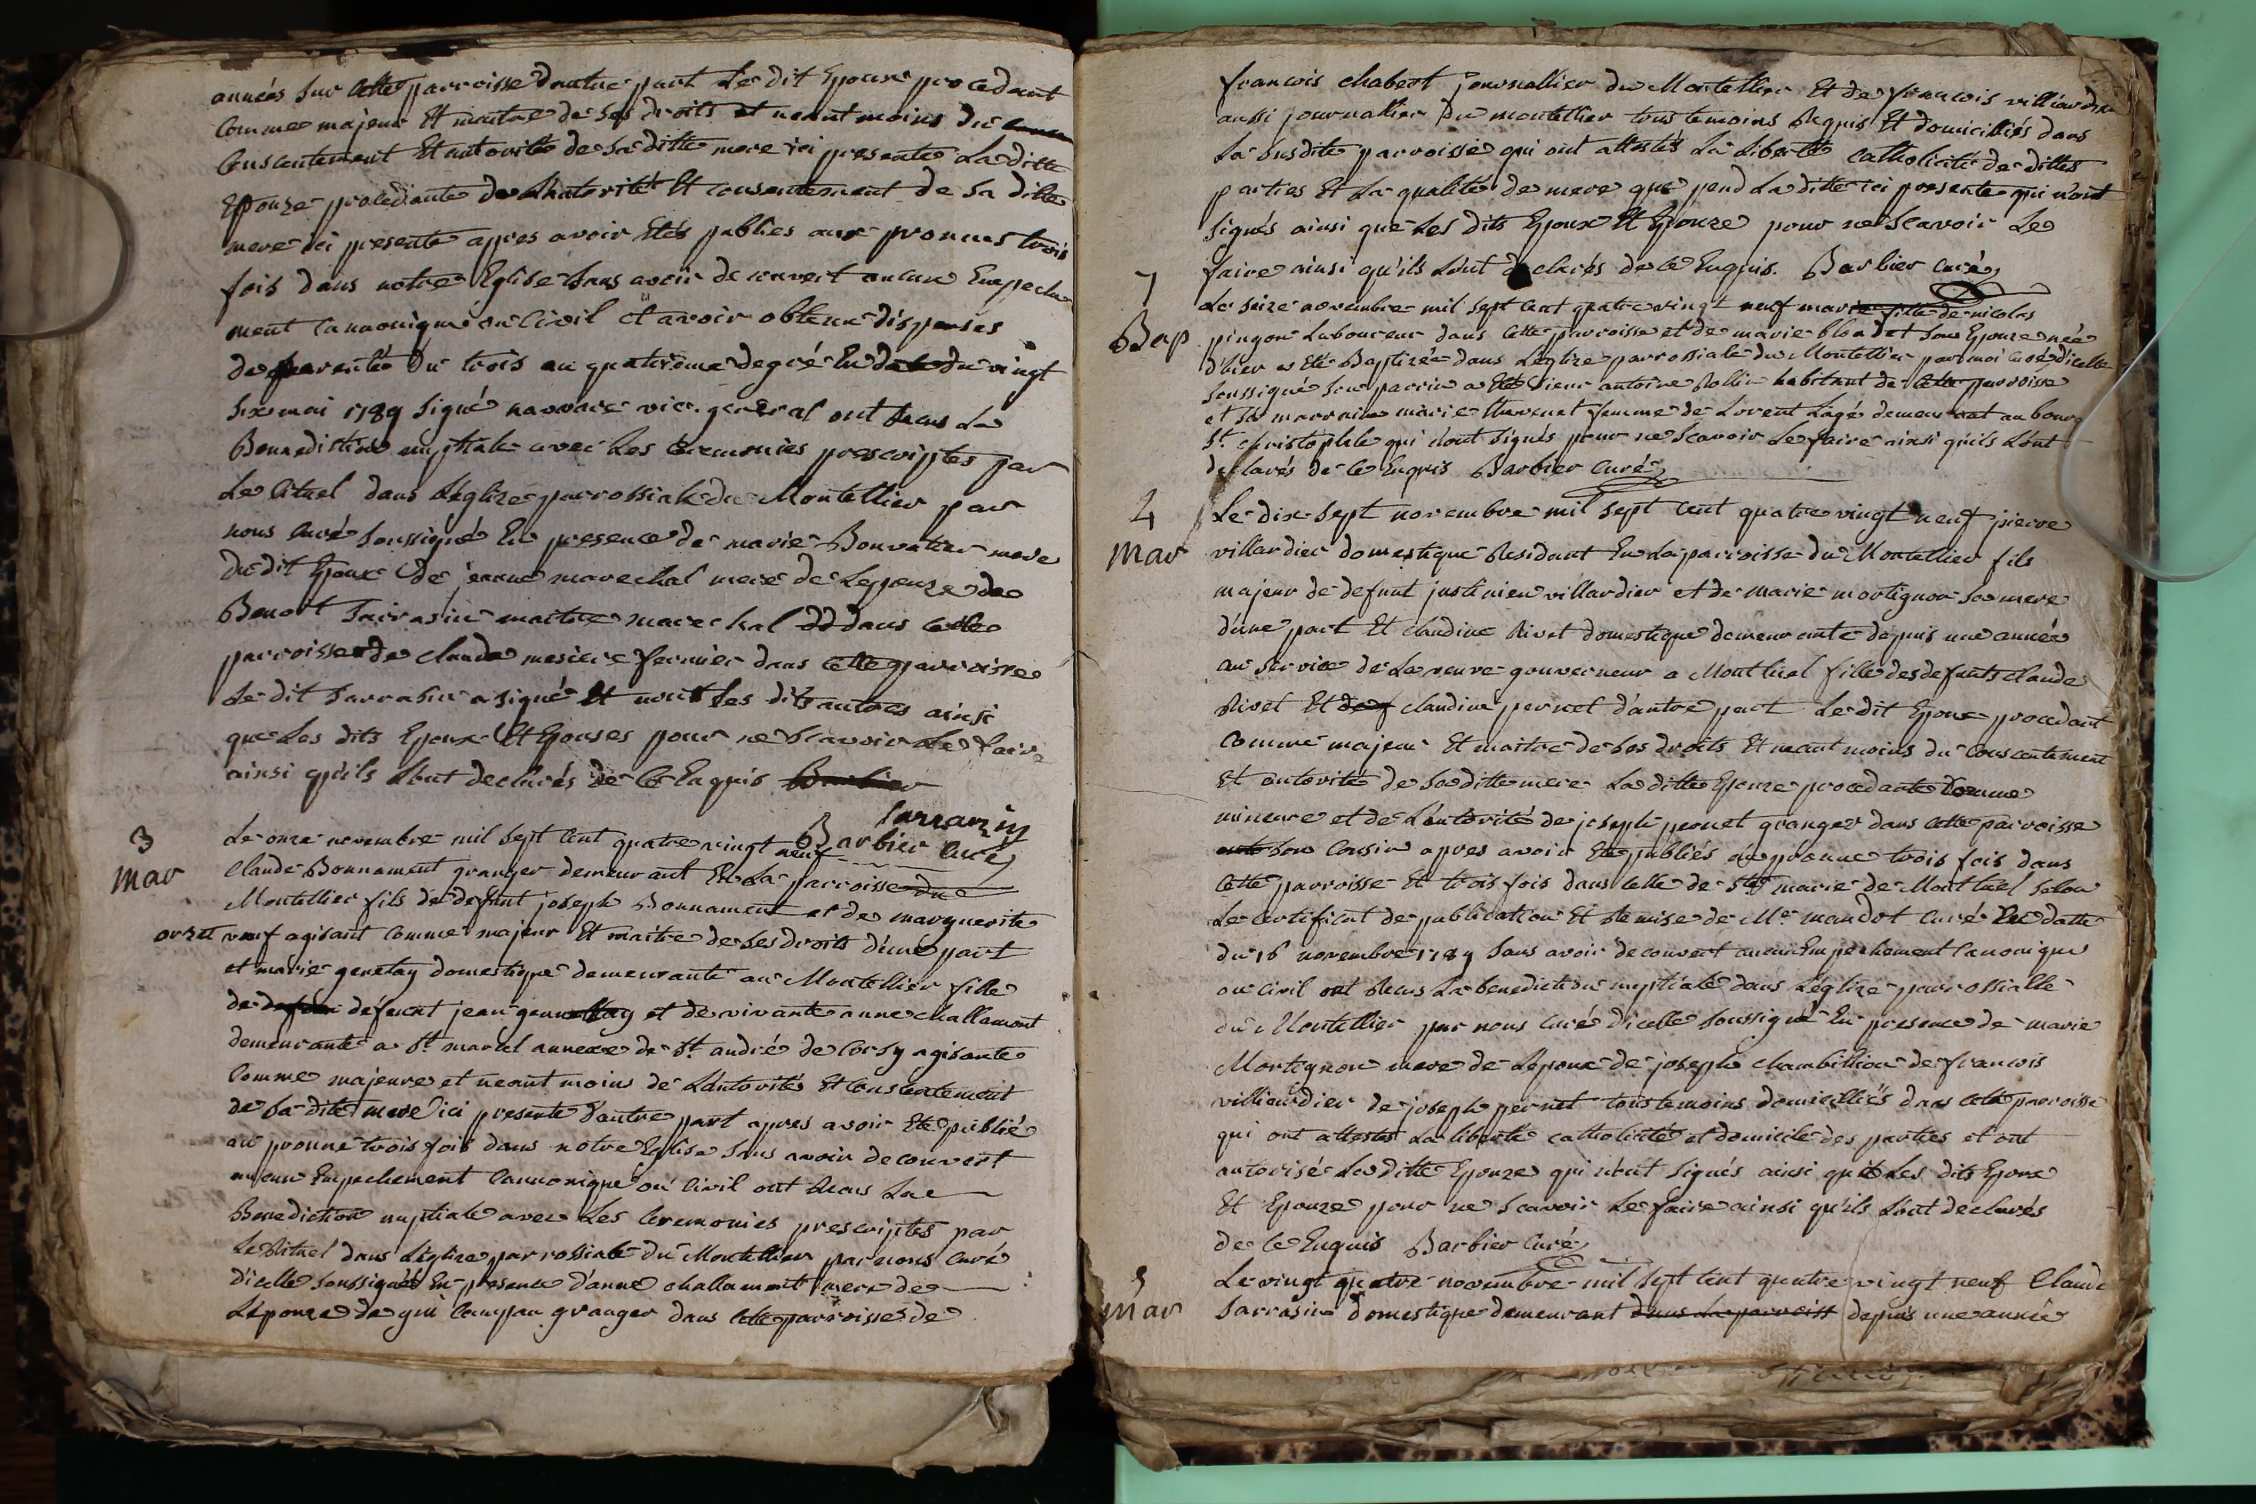 années sur cette parroisse d'autre part Le dit Epoux procedant
comme majeur Et maitre de ses droits et neantmoins du
consentement Et autorité de sa ditte mere ici presente La ditte
Epouze procediante de L'autorité Et consentement de sa ditte
mere ici presente apres avoir Etés publies aux pronnes trois
fois dans notre Eglise sans avoir decouvert aucun Empeche
ment cannonique ou civil et avoir obtenu dispenses
de parenté du trois au quatrieme degré En date du vingt
six mai 1789 signé navarre vic. general ont recus La
Bennediction nuptiale avec Les ceremonies prescriptes par
Le rituel dans L'eglize parrossiale du Montellier par
nous curé soussigné En presence de marie Bonvatier mere
du dit Epoux de jeanne marechal mere de Lepouze de
Benoit sarrasin maitre marechal dans cette
parroisse de claude mesiere fermier dans cette parroisse
Le dit sarrasin a signé Et nont Les dits autres ainsi
que Les dits Epoux Et Epouses pour ne scavoir Le faire
ainsi qu'ils L'ont declarés de ce Enquis Barbier
sarrazin
Barbier curé
3
Mar
Le onze novembre mil sept cent quatre vingt neuf
Claude Bonnament granger demeurant En La parroisse du
Montellier fils de defunt joseph Bonnament et de marguerite
veuf agisant comme majeur Et maitre de ses droits d'une part
et marie genetay domestique demeurante au Montellier fille
de defunt jean gennettay et de vivante anne challamont
demeurante a St. marcel annexe de St. andré de Corsy agisante
comme majeure et neantmoins de L'autorité Et consentement
de sa dite mere ici presente d'autre part apres avoir Eté publié
au pronne trois fois dans notre Eglise sans avoir decouvert
aucun Empechement cannonique ou civil ont recus La
Benediction nuptiale avec Les ceremonies prescriptes par
Le Rituel dans L'eglize parrossiale du Montellier par nous curé
d'icelle soussigné En presence d'anne challamont mere de
Lepouze de gui granger dans cette parroisse de
francois chabert journallier du Montellier Et de francois
aussi journallier du montellier tous temoins Requis Et domiciliés dans
La susdite parroisse qui ont attestés La Liberté catholicité de dittes
parties Et La qualité de mere que prend La ditte ici presente qui n'ont
signés ainsi que Les dits Epoux Et Epouze pour ne scavoir Le
faire ainsi qu'ils L'ont declarés de ce Enquis. Barbier curé
7
Bap
Le seize novembre mil sept cent quatre vingt neuf marie fille de nicolas
pingon Laboureur dans cette parroisse et de marie blondet son Epouze née
d'hier a Eté Baptizée dans L'eglize parrossiale du Montellier par moi curé d'icelle
soussigné son parrin a Eté sieur antoine Rollin habitant de cette parroisse
et sa marraine marie thevenet femme de Lorent Lagé demeurant au bourg
St. christophle qui n'ont signés pour ne scavoir Le faire ainsi qu'ils L'ont
declarés de ce Enquis Barbier curé
4
Mar
Le dix sept novembre mil sept cent quatre vingt neuf pierre
villardier domestique Residant En La parroisse du Montellier fils
majeur de defunt justinien villardier et de marie mortignon sa mere
d'une part Et claudine Rivet domestique demeurante depuis une année
au service de La veuve gouverneur a Montluel fille des defunts claude
Rivet Et claudine pernet d'autre part Le dit Epoux procedant
comme majeur Et maitre de ses droits Et neantmoins du consentement
Et autorité de sa ditte mere La ditte Epouze procedante comme
mineure et de L'autorité de joseph pernet granger dans cette parroisse
son cousin apres avoir Eté publiés au pronne trois fois dans
cette parroisse Et trois fois dans celle de Ste marie de Montluel selon
Le certificat de publication Et Remise de Mr. mandot curé En datte
du 16 novembre 1789 sans avoir decouvert aucun Empechement canonique
ou civil ont Recus La benediction nuptiale dans L'eglize parrossialle
du Montellier par nous curé d'icelle soussigné En presence de marie
Mortignon mere de Lepoux de joseph chambillion de francois
villiardier de joseph pernet tous temoins domiciliés dans cette parroisse
qui ont attestés La liberté catholicité et domicile des parties et ont
autorisé La ditte Epouze qui n'ont signés ainsi que Les dits Epoux
Et Epouze pour ne scavoir Le faire ainsi qu'ils L'ont declarés
de ce Enquis Barbier curé
5
Mar
Le vingt quatre novembre mil sept cent quatre vingt neuf Claude
sarrasin domestique demeurant dans La parroiss depuis une année